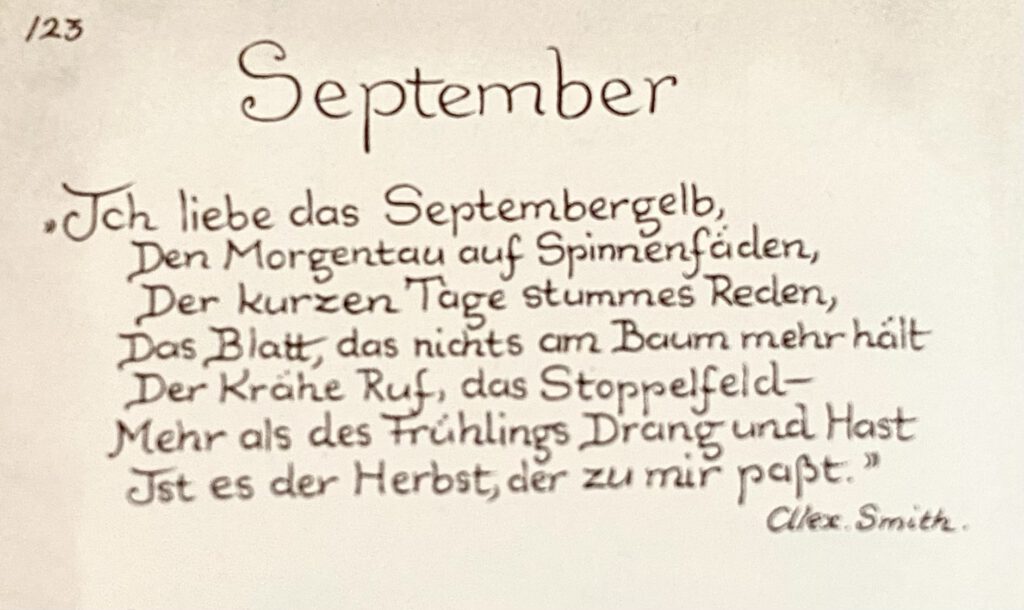 123
September
„Ich liebe das Septembergelb,
Den Morgentau auf Spinnenfäden,
Der kurzen Tage stummes Reden,
Das Blatt, das nichts am Baum mehr hält
Der Krähe Ruf, das Stoppelfeld–
Mehr als des Frühlings Drang und Hast
Ist es der Herbst, der zu mir paßt."
Alex. Smith.